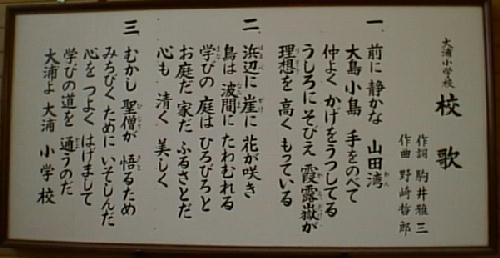 大浦小学校
校歌
作詞 駒井雅三
作曲 野崎哲郎
一 前に静かな 山田湾
大島小島 手をのべて
仲よく かげをうつしてる
うしろにそびえ 霞露嶽が
理想を 高く もっている
二 浜辺に 崖に 花が咲き
鳥は 波間に たわむれる
学びの 庭は ひろびろと
お庭だ 家だ ふるさとだ
心も 清く 美しく
三 むかし 聖僧が 悟るため
みちびくために いそしんだ
心を つよく はげまして
学びの道を 通うのだ
大浦よ 大浦 小学校